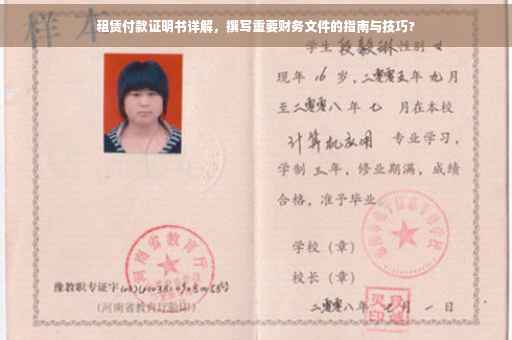 租赁付款证明书详解，撰写重要财务文件的指南与技巧?
样本
学生段毅琳性别女
现年16岁，二零零五年九月
至二零零八年七月在本校
计算机应用专业学习，
学制三年，修业期满，成绩
合格，准予毕业。
学校（章）
校长（章）
二零零八年七月一日
河南省教育厅
豫教职专证字
(河南省教育厅验印)